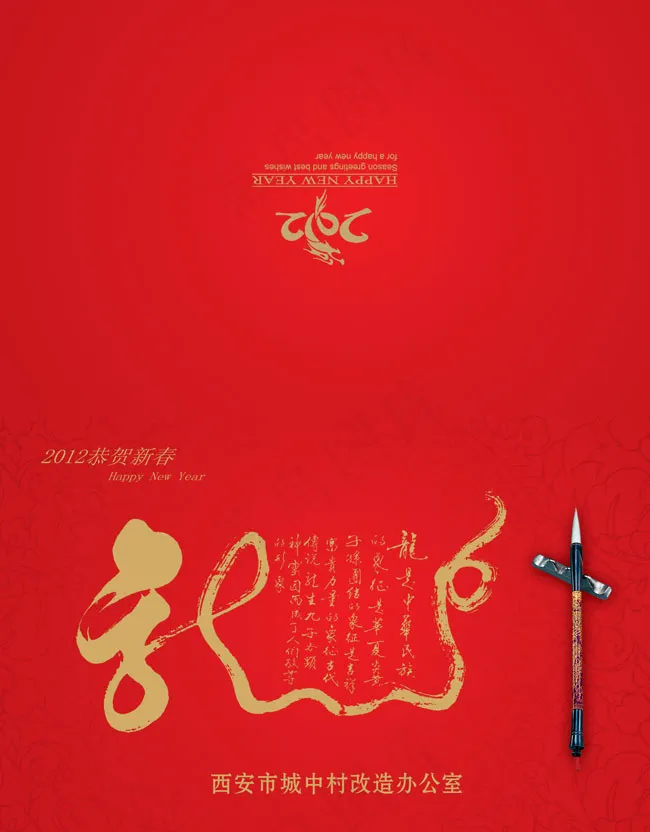 2012
HAPPY NEW YEAR
Season greetings and best wishes
for a happy new year
2012恭贺新春
Happy New Year
龙
龍是中華民族
的象征是華夏炎黃
子孫團結的象征是吉祥
富貴力量的象征古代
傳說龍生九子各類
神靈因而爲了人们敬
的形象
西安市城中村改造办公室